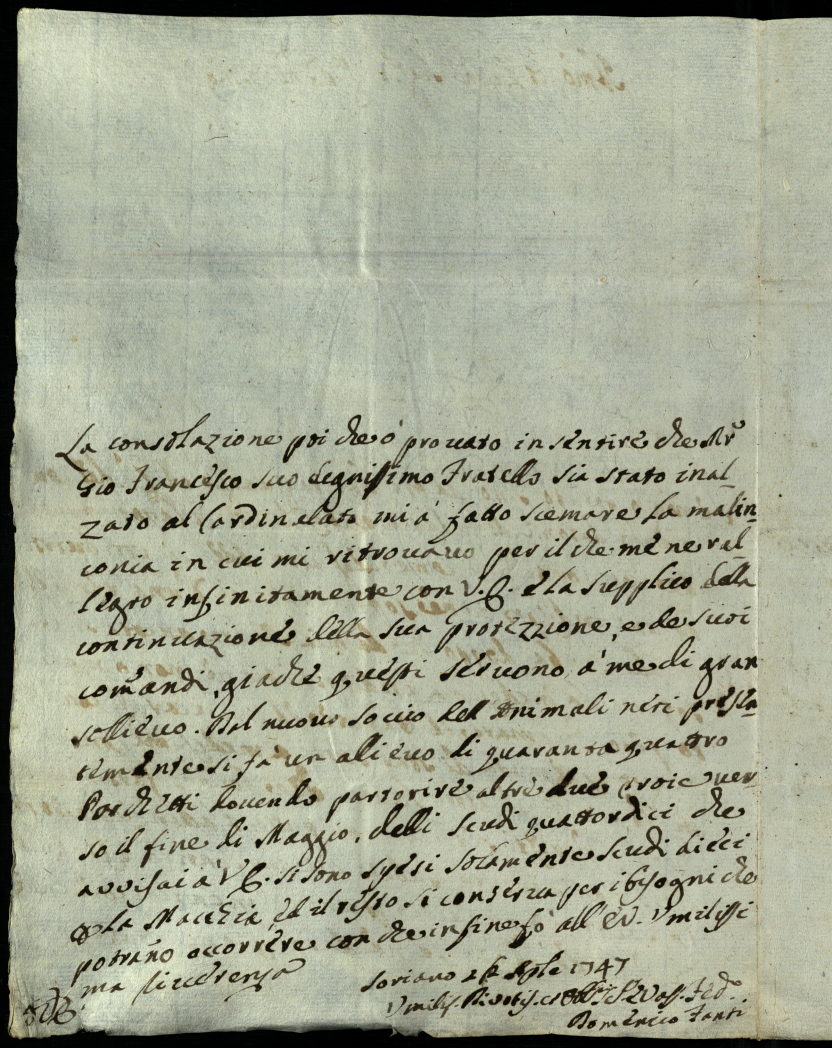 La consolazione poi che ò prouato in sentire che Mr
Gio Francesco suo degnissimo Fratello sia stato inal-
zato al Cardinalato mi à fatto scemare la malin-
conia in cui mi ritrouauo per il che me ne ral-
legro infinitamente con V. E. e la supplico della
continuazione della sua protezzione, e de suoi
comandi, giache questi seruono à me di gran
sollieuo. Dal nuouo soccio dell Animali neri presen-
temente si fà un allieuo di quaranta quattro
Porchetti douendo partorire altre due troie uer-
so il fine di Maggio, delli scudi quattordici che
auuisai à V E. si sono spesi solamente scudi dieci
La Macchia, ed il resto si conserua per i bisogni che
potrano accorrere con che infine fò all' EV. Vmilissi
ma riuerenza
Soriano Aple 1747
Vmilis.
Domenico Fanti